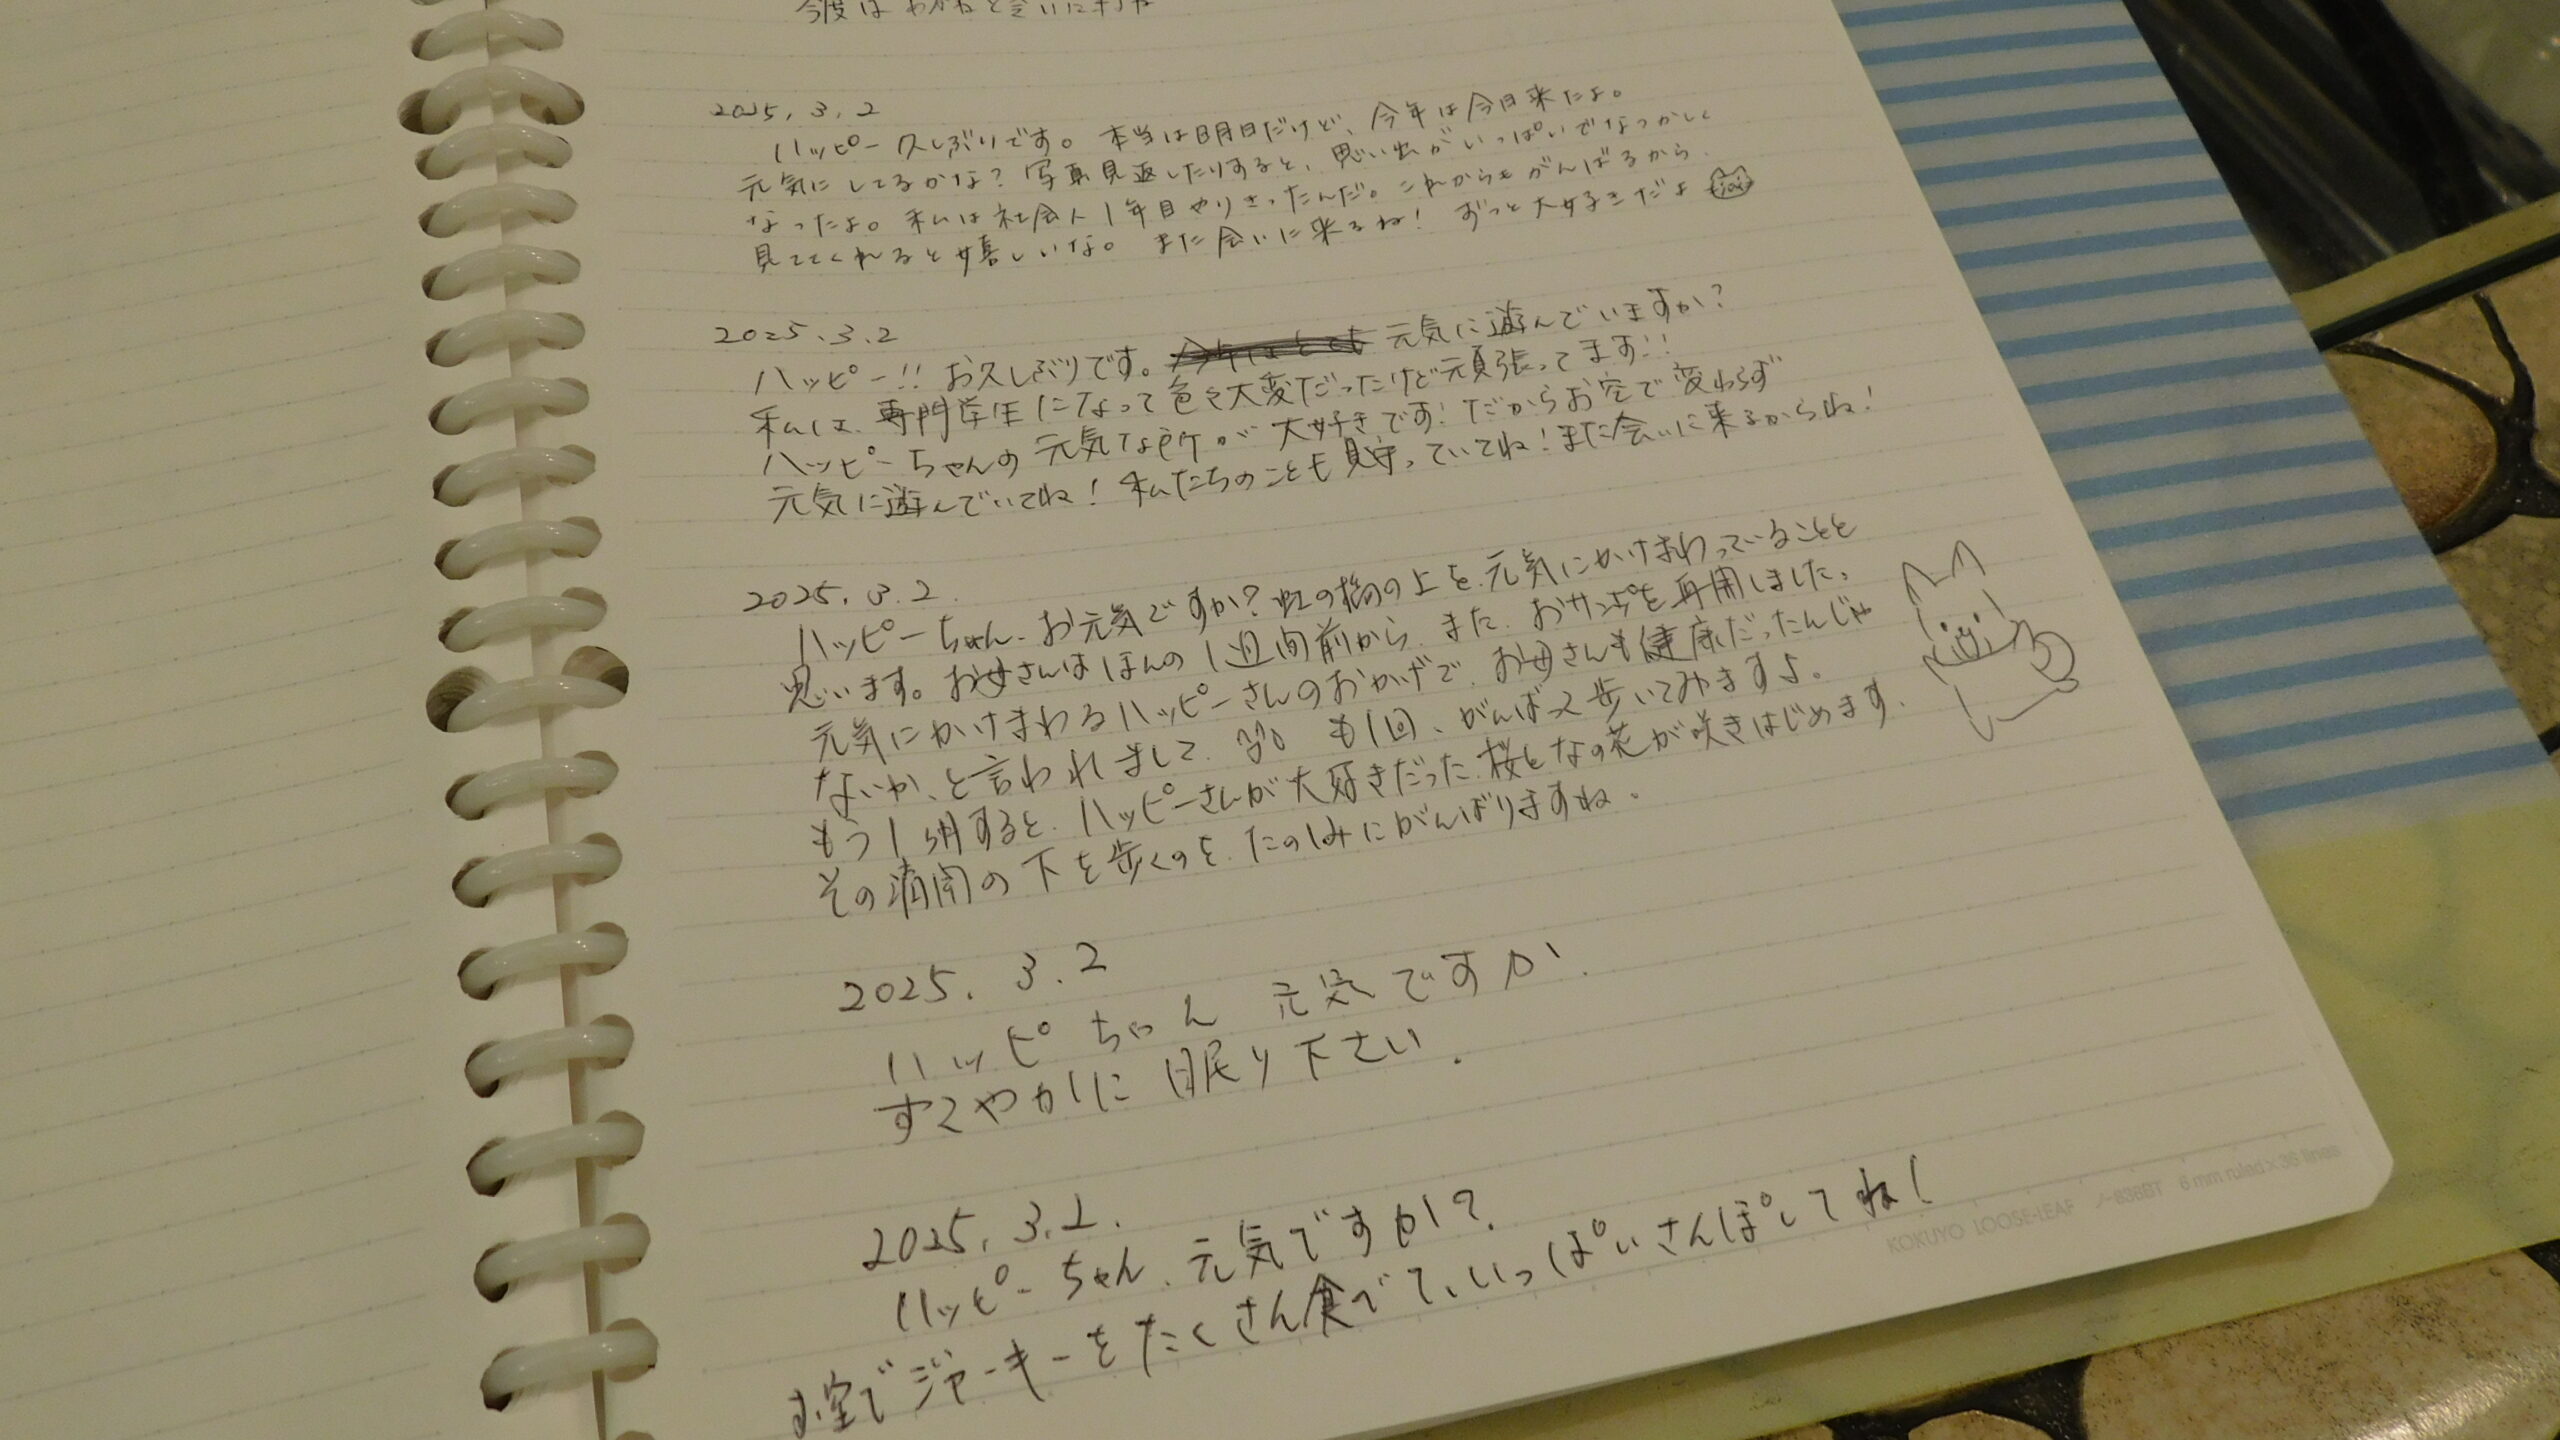 今度は
2025.3.2
ハッピー久しぶりです。本当は明日だけど、今年は今日来たよ。
元気にしてるかな?写真見返したりすると、思い出がいっぱいでなつかしく
なったよ。私は社会人1年目やりきったんだ。これからもがんばるから
見ててくれると嬉しいな。また会いに来るね!ずっと大好きだよ
2025.3.2
ハッピー!!お久しぶりです。元気に遊んでいますか?
私は、専門学生になって色々大変だったけど頑張ってます!!
ハッピーちゃんの元気な所が大好きです!だからお空で変わらず
元気に遊んでいてね!私たちのことも見守っていてね!また会いに来るからね!
2025.3.2.
ハッピーちゃん、お元気ですか?虹の橋の上を、元気にかけまわっていることと
思います。お母さんはほんの1週間前から、また、おサンポを再開しました。
元気にかけまわるハッピーさんのおかげで、お母さんも健康だったんじゃ
ないか、と言われまして、もう1回、がんばって歩いてみますよ。
もう1ヶ月すると、ハッピーさんが大好きだった、桜となの花が咲きはじめます。
その満開の下を歩くのを、たのしみにがんばりますね。
2025.3.2
ハッピちゃん 元気ですか.
すこやかに眠り下さい.
2025.3.2.
ハッピーちゃん、元気ですか?
お空でジャーキーをたくさん食べて、いっぱいさんぽしてね!
KOKUYO LOOSE-LEAF ノ-836BT 6 mm ruled×36 lines